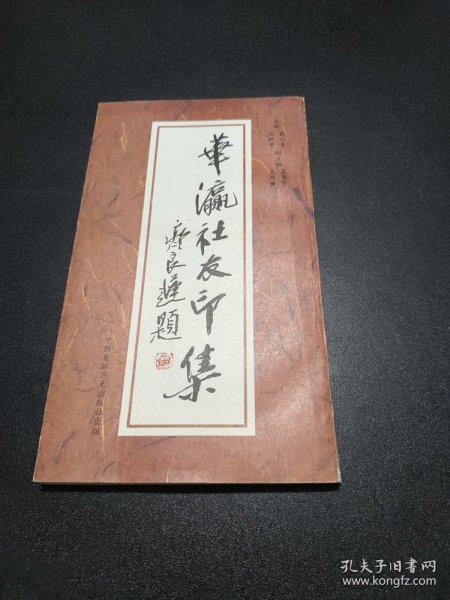 華瀛社友印集
齊良遲題
中国奥林匹克出版社出版
孔夫子旧书网
www.kongfz.com